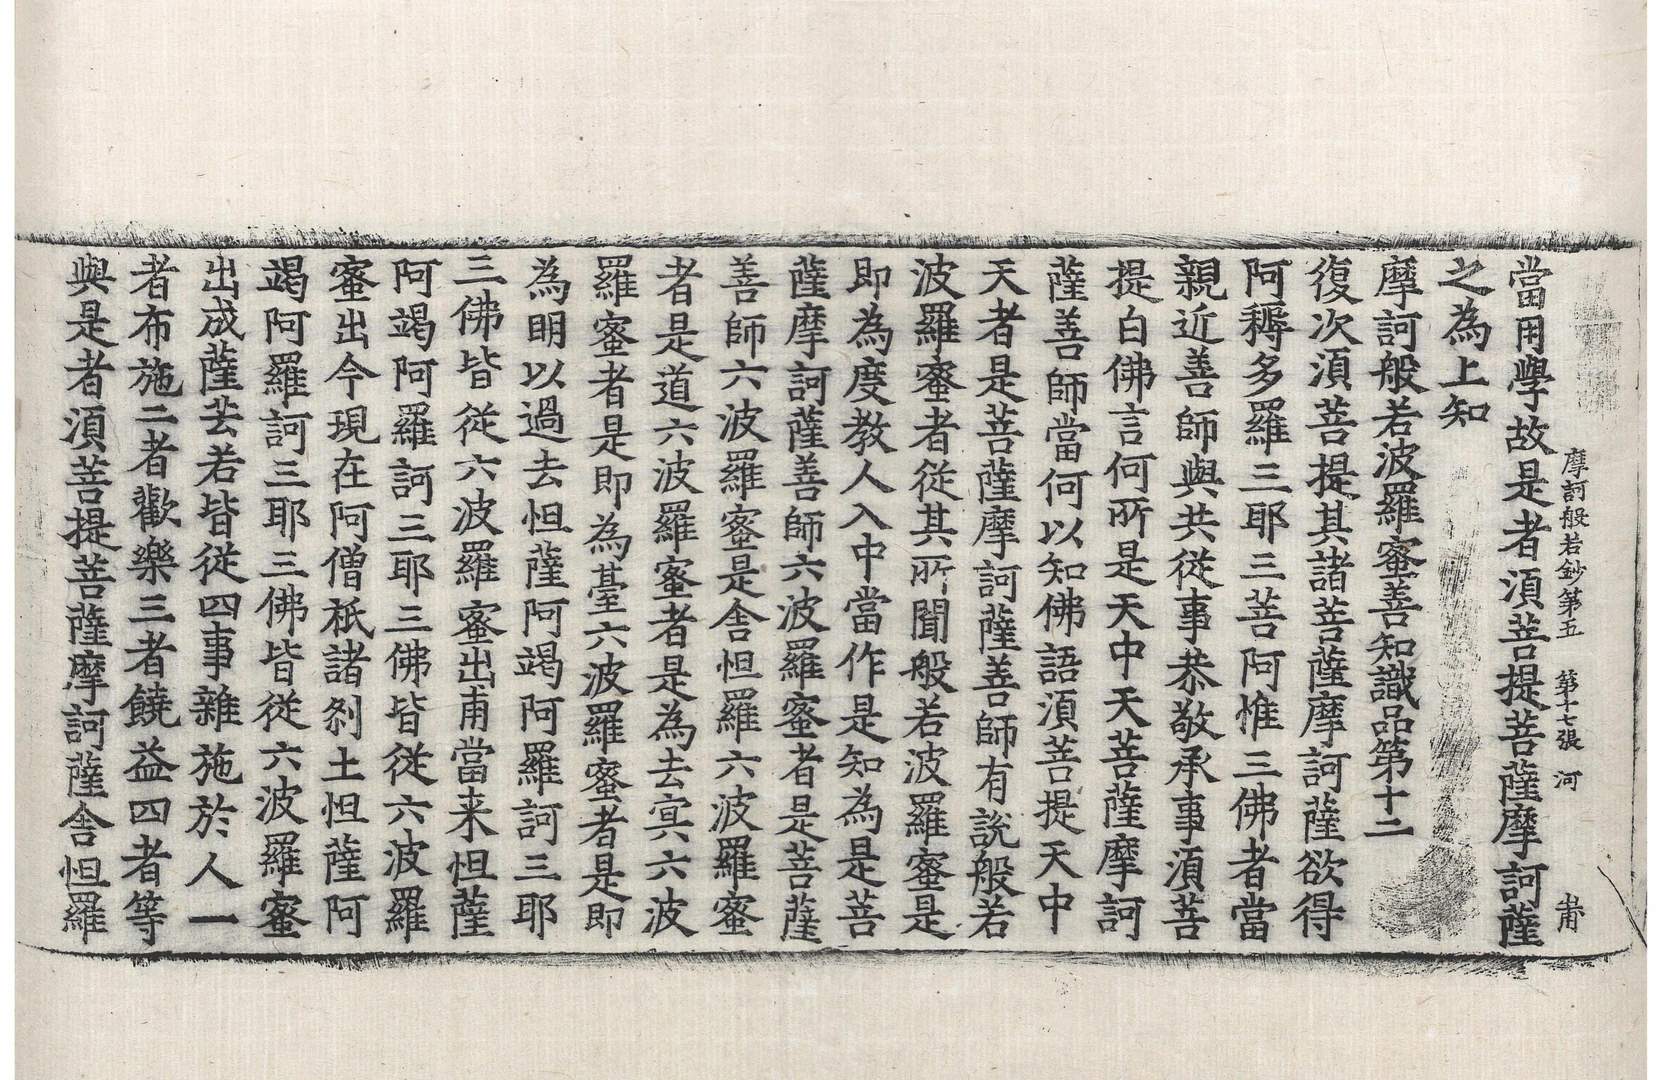 摩訶般若鈔第五　第十七張　河
當用學故是者須菩提菩薩摩訶薩
之為上知
摩訶般若波羅蜜善知識品第十二
復次須菩提其諸菩薩摩訶薩欲得
阿耨多羅三耶三菩阿惟三佛者當
親近善師與共從事恭敬承事須菩
提白佛言何所是天中天菩薩摩訶
薩善師當何以知佛語須菩提天中
天者是菩薩摩訶薩善師有說般若
波羅蜜者從其所聞般若波羅蜜是
即為度教人入中當作是知為是菩
薩摩訶薩善師六波羅蜜者是菩薩
善師六波羅蜜是舍怛羅六波羅蜜
者是道六波羅蜜者是為去冥六波
羅蜜者是即為臺六波羅蜜者是即
為明以過去怛薩阿竭阿羅訶三耶
三佛皆從六波羅蜜出甫當来怛薩
阿竭阿羅訶三耶三佛皆從六波羅
蜜出今現在阿僧祇諸剎土怛薩阿
竭阿羅訶三耶三佛皆從六波羅蜜
出成薩芸若皆從四事雜施於人一
者布施二者歡樂三者饒益四者等
與是者須菩提菩薩摩訶薩舍怛羅